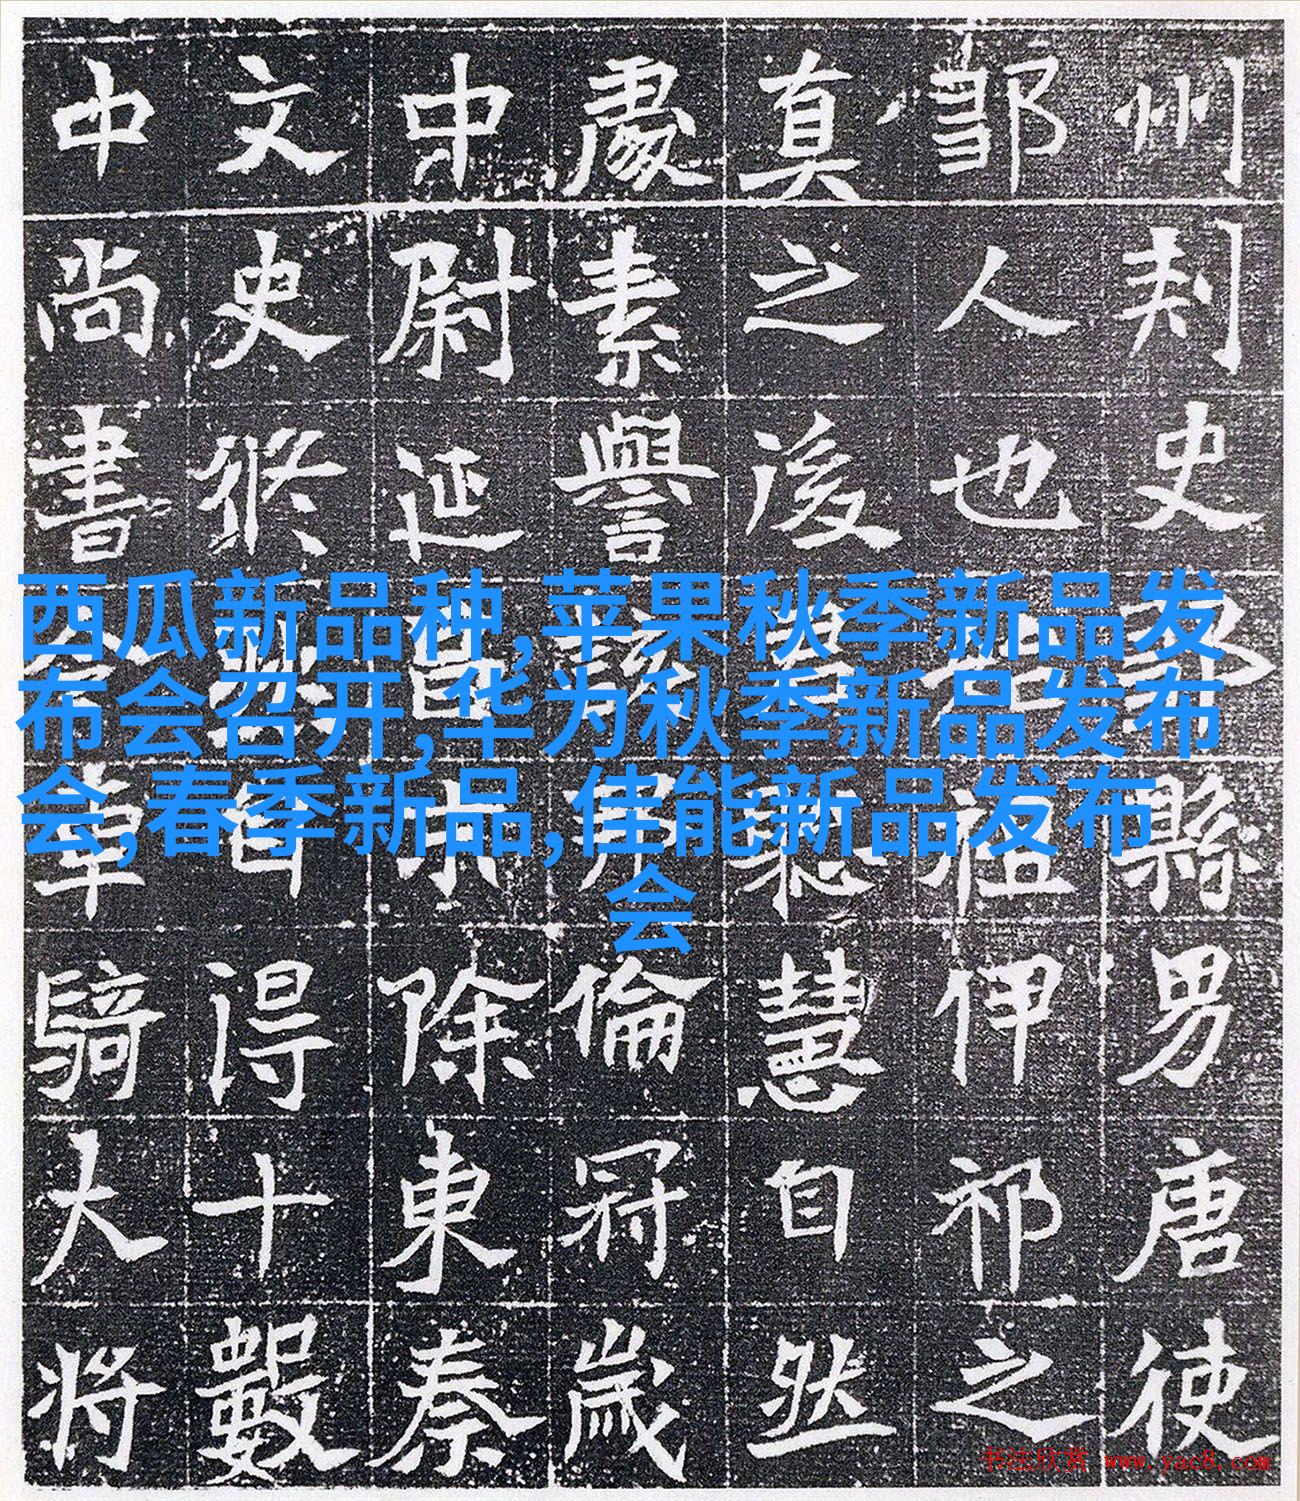 州刾史縣男唐使
鄒人也伊祁之
真之後慧自然
素譽倫冠歲
中尉延除東秦
文史得十數
中尚書騎大將
西瓜新品种,苹果秋季新品发
布会召开,华为秋季新品发布
会,春季新品,佳能新品发布
会
书法欣赏 www.yac8.com